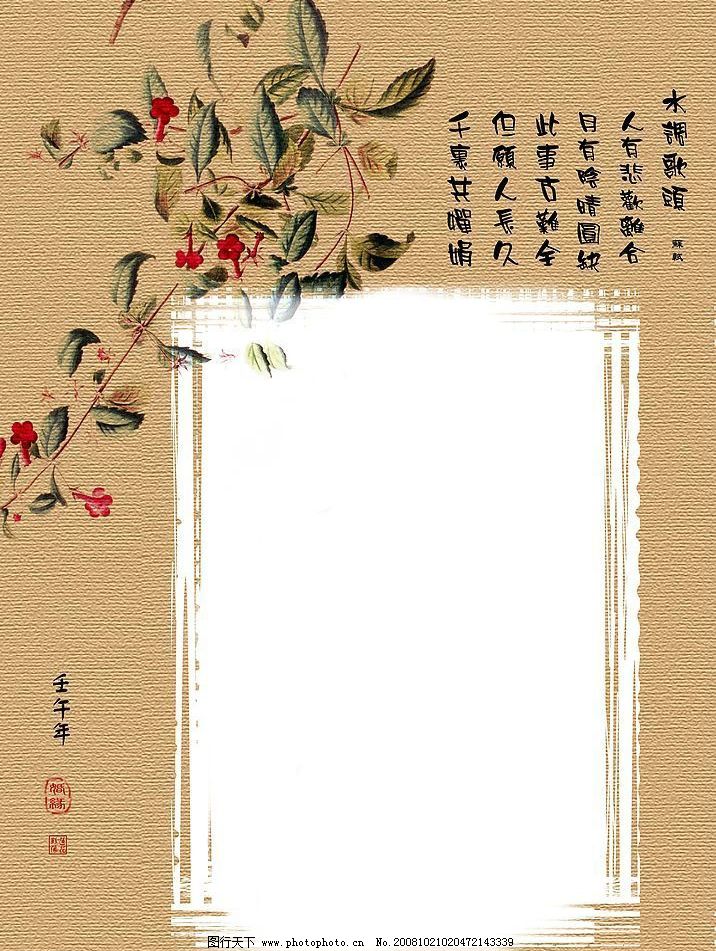 水調歌頭 蘇軾
人有悲歡離合
月有陰晴圓缺
此事古難全
但願人長久
千裏共嬋娟
壬午年
图行天下 www.photophoto.cn No.20081021020472143339